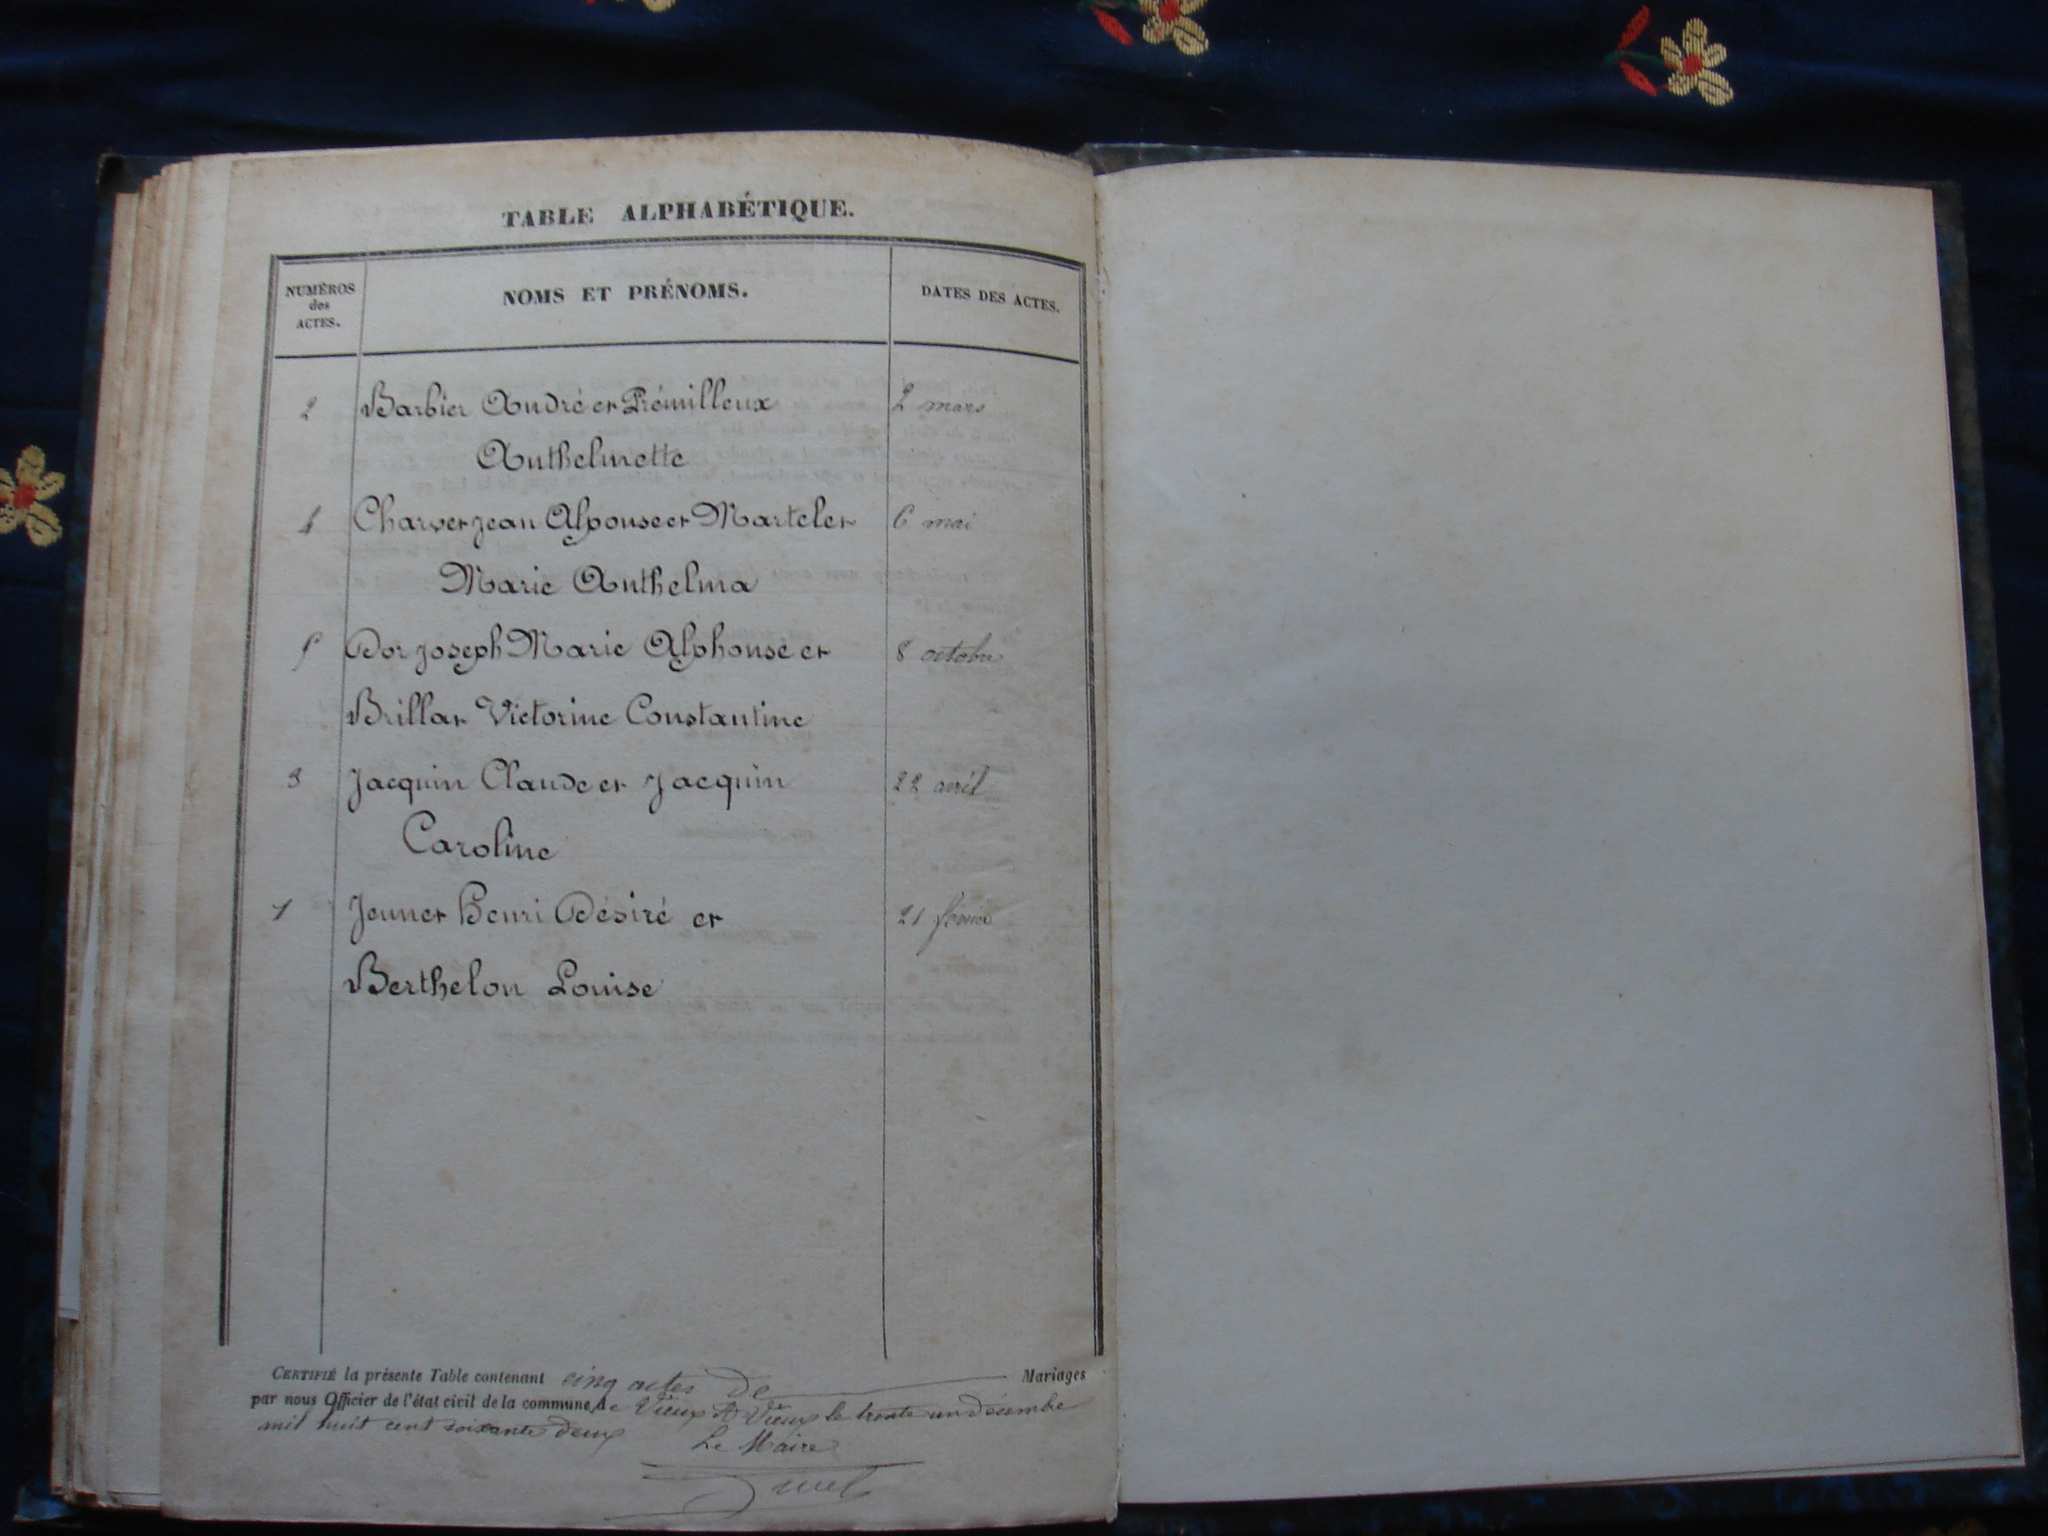 TABLE ALPHABÉTIQUE.
NUMÉROS des ACTES. NOMS ET PRÉNOMS. DATES DES ACTES.
2 Barbier André et Prémilleux 2 mars
Anthelmette
4 Charvet Jean Alponse et Martelet 6 mai
Marie Anthelma
5 Dor Joseph Marie Alphonse et 8 octobre
Brillat Victorine Constantine
3 Jacquin Claude et Jacquin 22 avril
Caroline
1 Jeunet Henri Désiré et 21 février
Berthelon Louise
CERTIFIÉ la présente Table contenant cinq actes de Mariages
par nous Officier de l'état civil de la commune de Vieux A Vieux le trente un décembre
mil huit cent soixante deux Le Maire